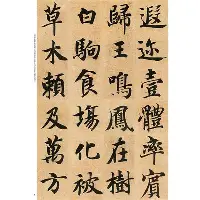 遐迩壹體率賓
歸王鳴鳳在樹
白駒食塲化被
草木賴及萬方